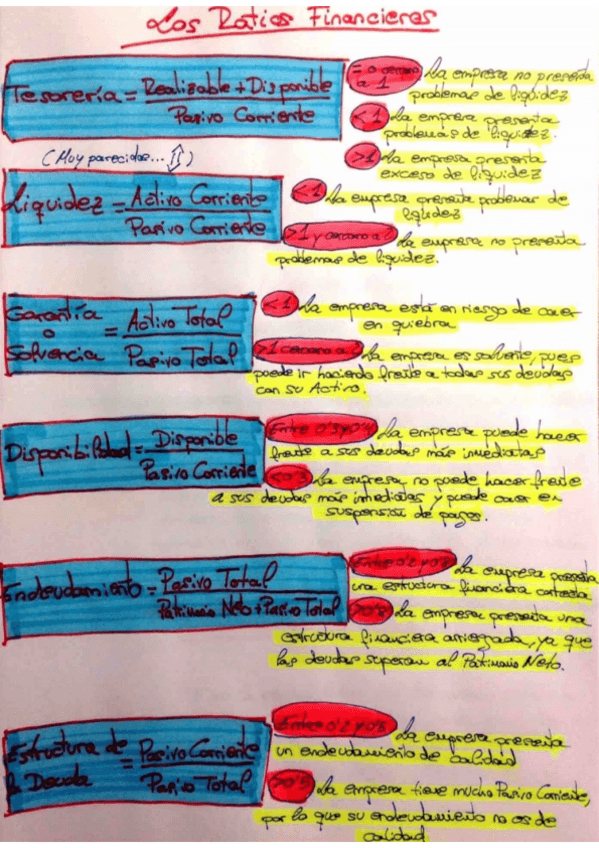 Los Ratios Financieros
Tesorería = Realizable + Disponible
Pasivo Corriente
= o cercano a 1
La empresa no presenta
problemas de liquidez
<1
La empresa presenta
problemas de liquidez.
(Muy parecidas... )
>1
La empresa presenta
exceso de liquidez
Liquidez = Activo Corriente
Pasivo Corriente
<1
La empresa presenta problemas de
liquidez
>1 y cercano a 2
La empresa no presenta
problemas de liquidez.
Garantía
o
Solvencia
= Activo Total
Pasivo Total
<1
La empresa está en riesgo de caer
en quiebra
>1 cercano a 2
La empresa es solvente, pues
puede ir haciendo frente a todas sus deudas
con su Activo.
Disponibilidad = Disponible
Pasivo Corriente
Entre 0'3 y 0'4
La empresa puede hacer
frente a sus deudas más inmediatas
<0'3
La empresa no puede hacer frente
a sus deudas más inmediatas y puede caer en
suspensión de pagos.
Endeudamiento = Pasivo Total
Patrimonio Neto + Pasivo Total
Entre 0'2 y
La empresa presenta
una estructura financiera correcta
La empresa presenta una
estructura financiera arriesgada, ya que
las deudas superan al Patrimonio Neto.
Estructura de
la Deuda
= Pasivo Corriente
Pasivo Total
Entre 0'2 y
La empresa presenta
un endeudamiento de calidad
>0'5
La empresa tiene mucho Pasivo Corriente,
por lo que su endeudamiento no es de
calidad